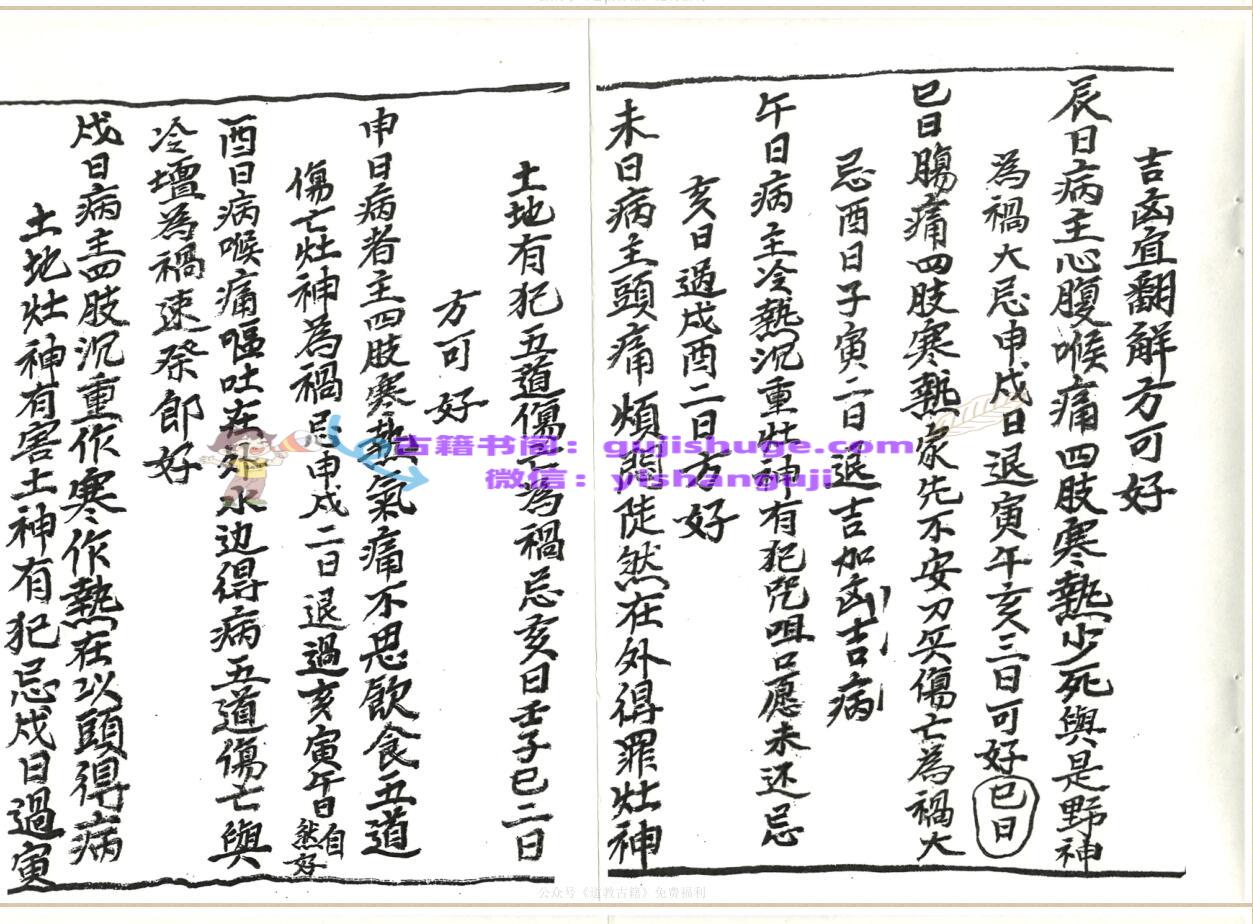 吉凶宜翻解方可好
辰日病主心腹喉痛四肢寒熱少死與是野神
為禍大忌申戍日退寅午亥三日可好巳日
巳日腸痛四肢寒熱家先不安刀兵傷亡為禍大
忌酉日子寅二日退吉加凶吉病
午日病主冷熱沉重灶神有犯咒咀口愿未还忌
亥日過戍酉二日方好
未日病主頭痛煩悶陡然在外得罪灶神
土地有犯五道傷亡為禍忌亥日壬子巳二日
方可好
申日病者主四肢寒熱氣痛不思飲食五道
傷亡灶神為禍忌申戍二日退過亥寅午日自然好
酉日病喉痛嘔吐在外水边得病五道傷亡與
冷壇為禍速祭郎好
戍日病主四肢沉重作寒作熱在以頭得病
土地灶神有害土神有犯忌戍日過寅
古籍书阁：gujishuge.com
微信：yishanguji
公众号《道教古籍》免费福利